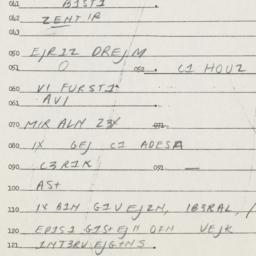 041 BISTI
042 ZENTIR
043
050 EJRIZ DREJM
051 O 052 . C1 HOUZ
060 VI FURST1
061 AVI
070 MIR ALN Z3X 071
080 IX GEJ C1 ADESA
090 C3R1K 091 —
100 AS+
110 IX B1N G1VEJZN, 1B3RAL, /
120 EP1S1 G1S+EJN OFN VEJK
121 1NT3RVEJG+NS.